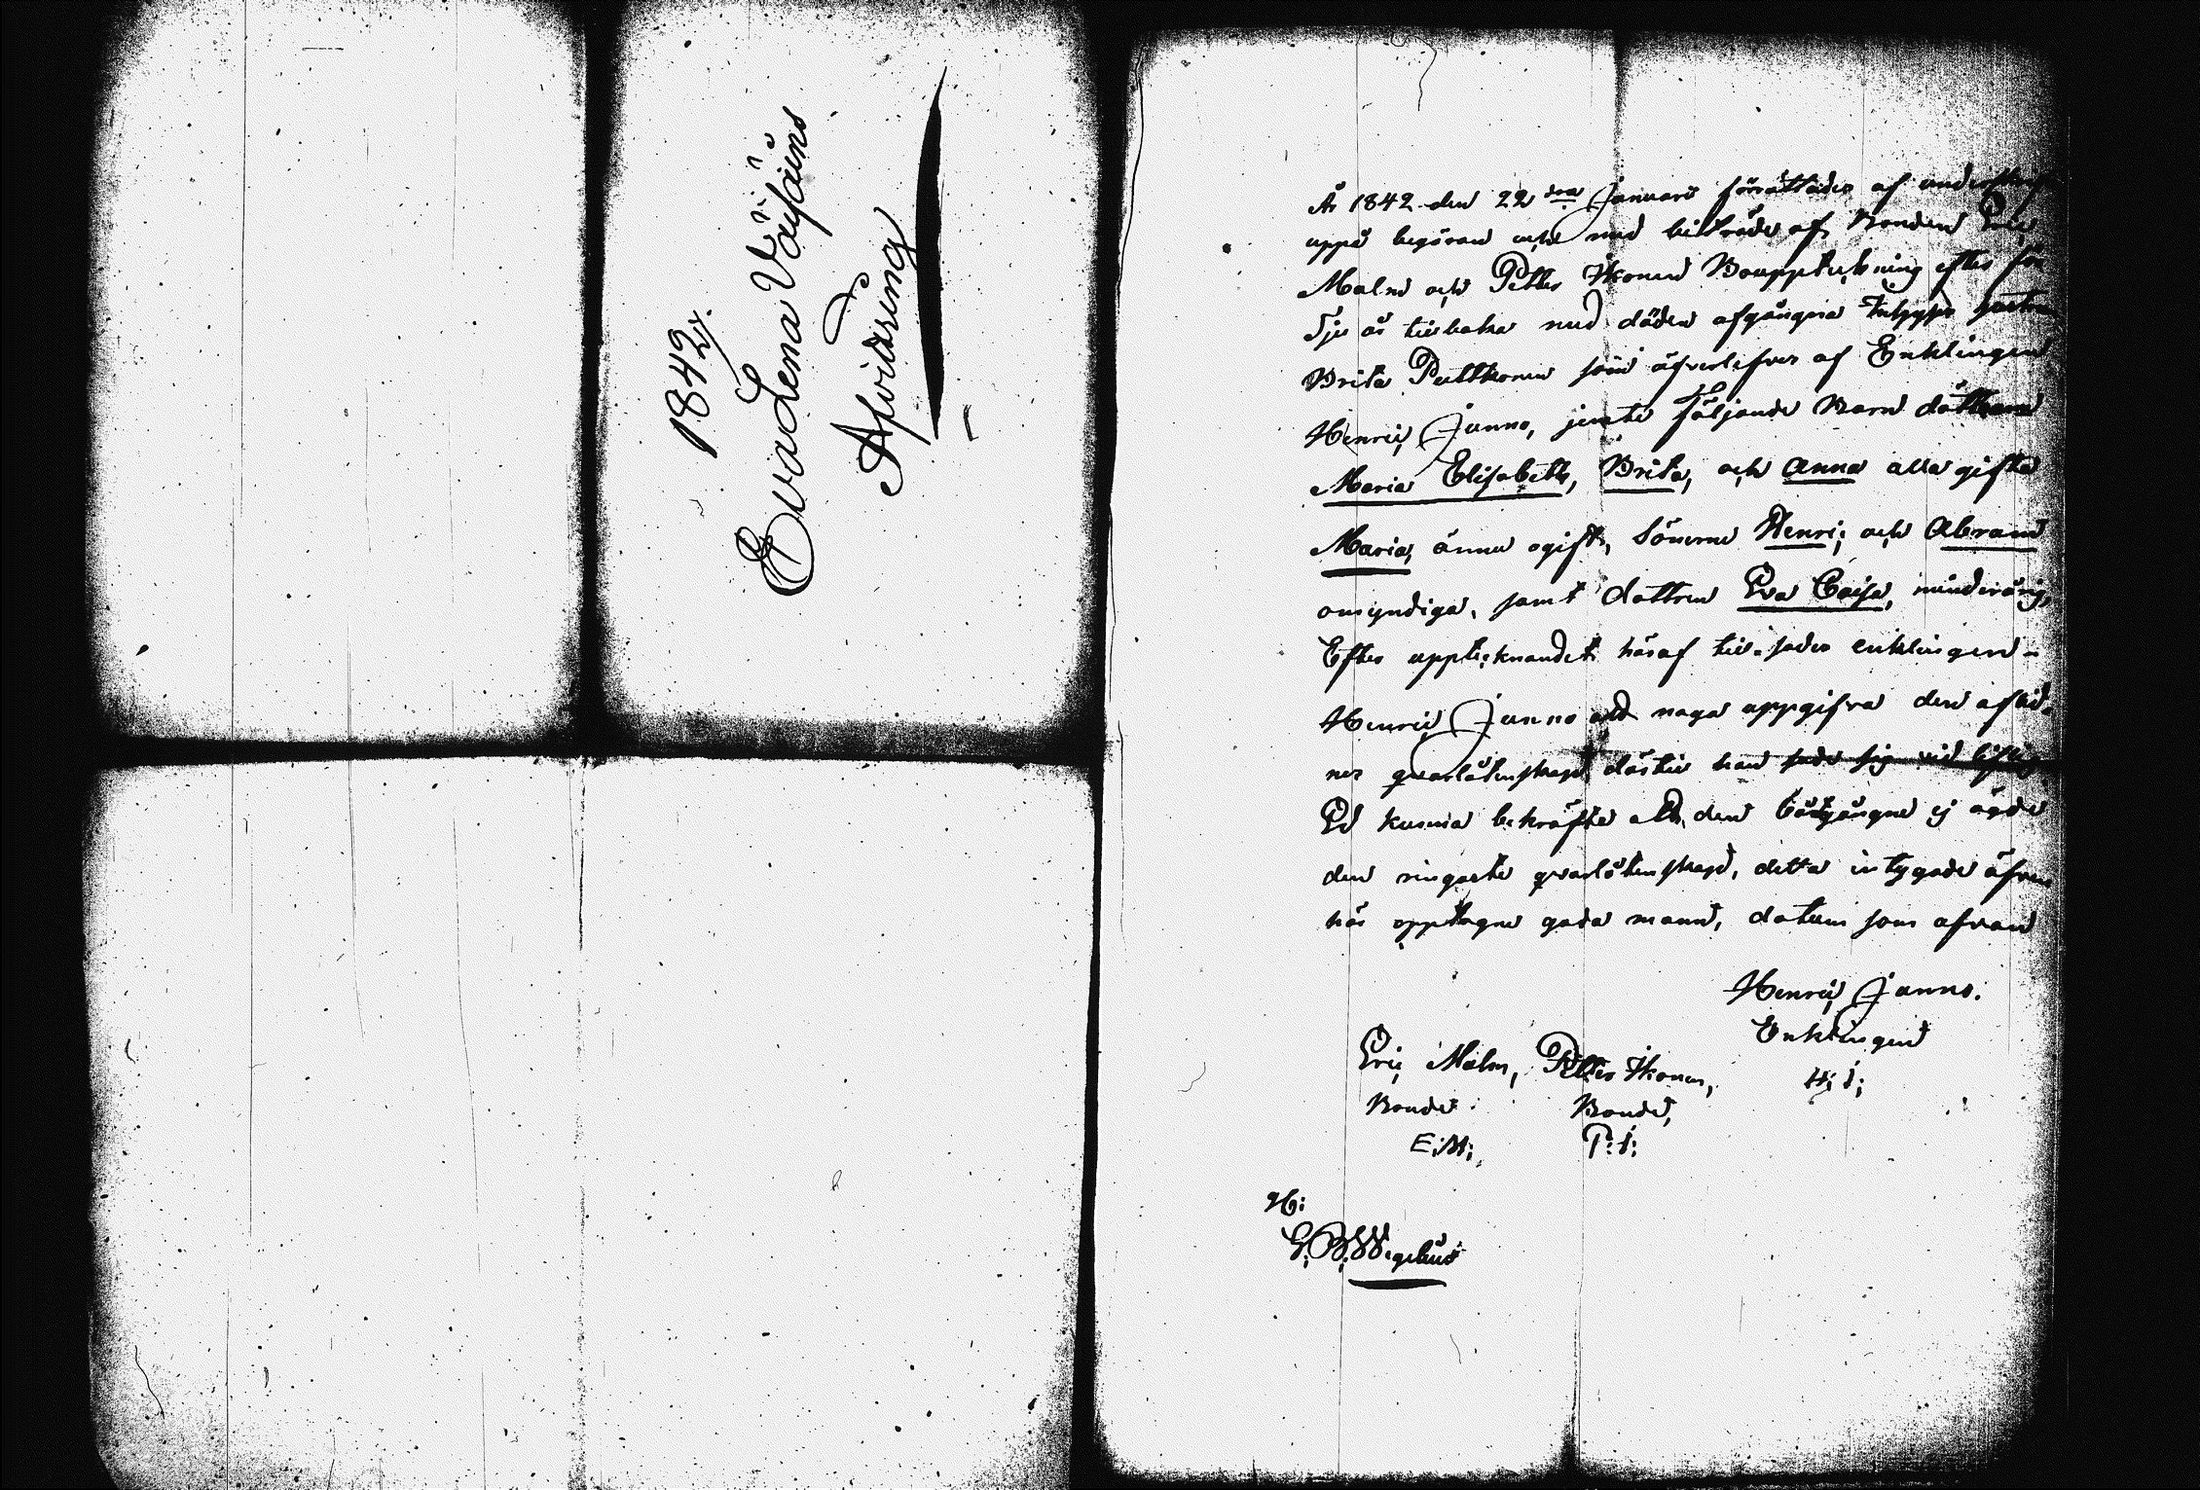 1842
Eva Lena Väisäins
Afvittring
År 1842 den 22 dra Januari förrättades af
uppå begäran och med biträde af Bonden Eric
Malm och Petter Ikonen Bouppteckning efter för
Sju år tillbaka med döden afgångna Inhyses hustrun
Brita Pulkkonen som äfverlefves af Enklingen
Henric Junno, jemte följande Barn döttrarne
Maria Elisabeth, Brita, och Anna alla gifta
Maria, ännu ogift, Sönerne Henric och Abram
omyndiga, samt dottren Eva Caisa, minderårig,
Efter upptecknandet häraf tillsades enklingen
Henric Junno att noga uppgifva den aflid-
nes qvarlåtenskap därtill han sade sig vid liflig
Ed kunna bekräfta att den bortgångne ej ägde
den ringaste qvarlåtenskap, detta intygade äfven
här opptagne goda mänd, datum som ofvan
Henric Junno.
Enklingen
H; J;
Eric Malm, Petter Ikonen,
Bonde Bonde,
E; M; P: I: